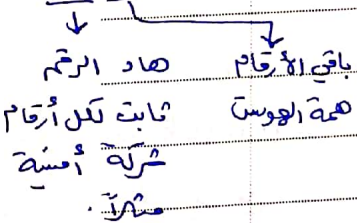 هاد الرقم
ثابت لكل أرقام
شركة أمنية
مثلاً.
باقي الأرقام
همة الهوست